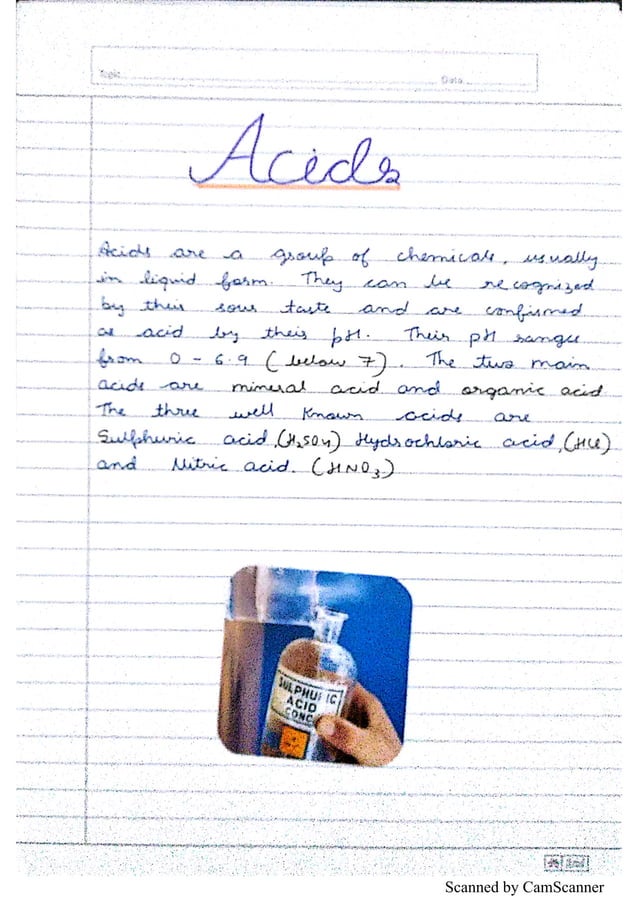 Topic
Date
Acids
Acids are a group of chemicals, usually
in liquid form. They can be recognized
by their sour taste and are confirmed
as acid by their pH. Their pH ranges
from 0 - 6.9 (below 7). The two main
acids are mineral acid and organic acid
The three well known acids are
Sulphuric acid,(H₂SO4) Hydrochloric acid,(HCl)
and Nitric acid. (HNO₃)
SULPHURIC
ACID
CONC
Scanned by CamScanner